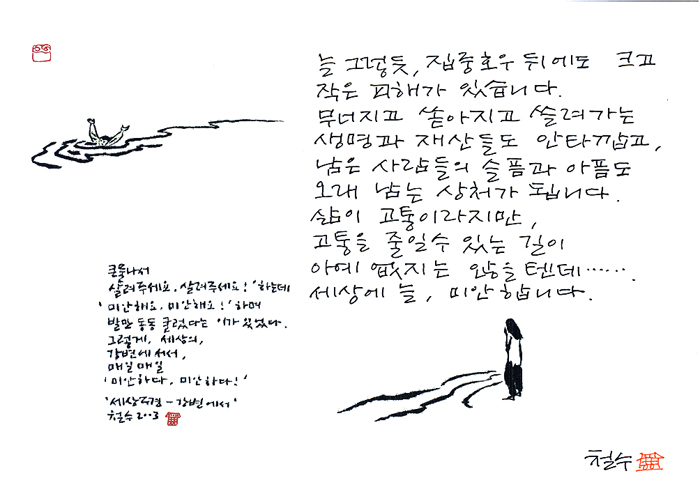 늘 그렇듯, 집중호우 뒤에도 크고
작은 피해가 있습니다.
무너지고 쏟아지고 쓸려가는
생명과 재산들도 안타깝고,
남은 사람들의 슬픔과 아픔도
오래 남는 상처가 됩니다.
삶이 고통이라지만,
고통을 줄일수 있는 길이
아예 없지는 않을텐데······.
세상에 늘, 미안합니다.
큰물나서
살려주세요, 살려주세요!' 하는데
'미안해요, 미안해요!' 하며
발만 동동 굴렀다는 이가 있었다.
그렇게, 세상의,
강변에 서서,
매일매일
'미안하다, 미안하다!'
'세상풍경 - 강변에서'
철수 2003
철수